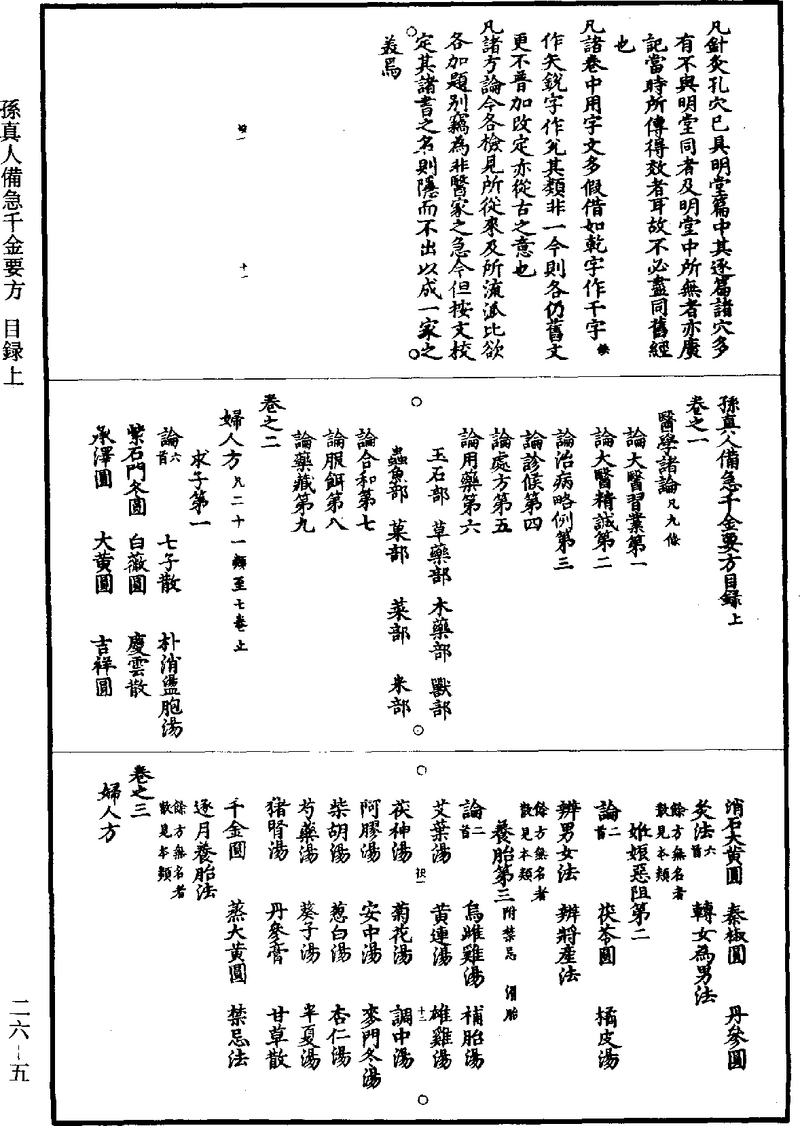 凡針灸孔穴已具明堂篇中其逐篇諸穴多
有不與明堂同者及明堂中所無者亦廣
記當時所傳得效者耳故不必盡同舊經
也
凡諸卷中用字文多假借如乾字作干字
作矢銳字作兊其類非一今則各仍舊文
更不普加改定亦從古之意也
凡諸方論今各檢見所從來及所流派比欲
各加題別竊為非醫家之急今但按文校
定其諸書之名則隱而不出以成一家之
義焉
十一
孫真人備急千金要方目録上
卷之一
醫學諸論凡九條
論大醫習業第一
論大醫精誠第二
論治病略例第三
論診候第四
論處方第五
論用藥第六
玉石部 草藥部 木藥部 獸部
蟲魚部 菓部 菜部 米部
論合和第七
論服餌第八
論藥藏第九
卷之二
婦人方凡二十一類至七卷止
求子第一
論六首 七子散 朴消盪胞湯
紫石門冬圓 白薇圓 慶雲散
承澤圓 大黄圓 吉祥圓
消石大黄圓 秦椒圓 丹參圓
灸法六首 轉女為男法
餘方無名者散見本類
姙娠惡阻第二
論二首 茯苓圓 橘皮湯
辨男女法 辨將產法
餘方無名者散見本類
養胎第三附禁忌 滑胎
論二首 烏雌雞湯 補胎湯
艾葉湯 黄連湯 雄雞湯
十二
茯神湯 菊花湯 調中湯
阿膠湯 安中湯 麥門冬湯
柴胡湯 葱白湯 杏仁湯
芍藥湯 葵子湯 半夏湯
猪腎湯 丹參膏 甘草散
千金圓 蒸大黄圓 禁忌法
逐月養胎法
餘方無名者散見本類
卷之三
婦人方
孫真人備急千金要方 目録上
二六－五